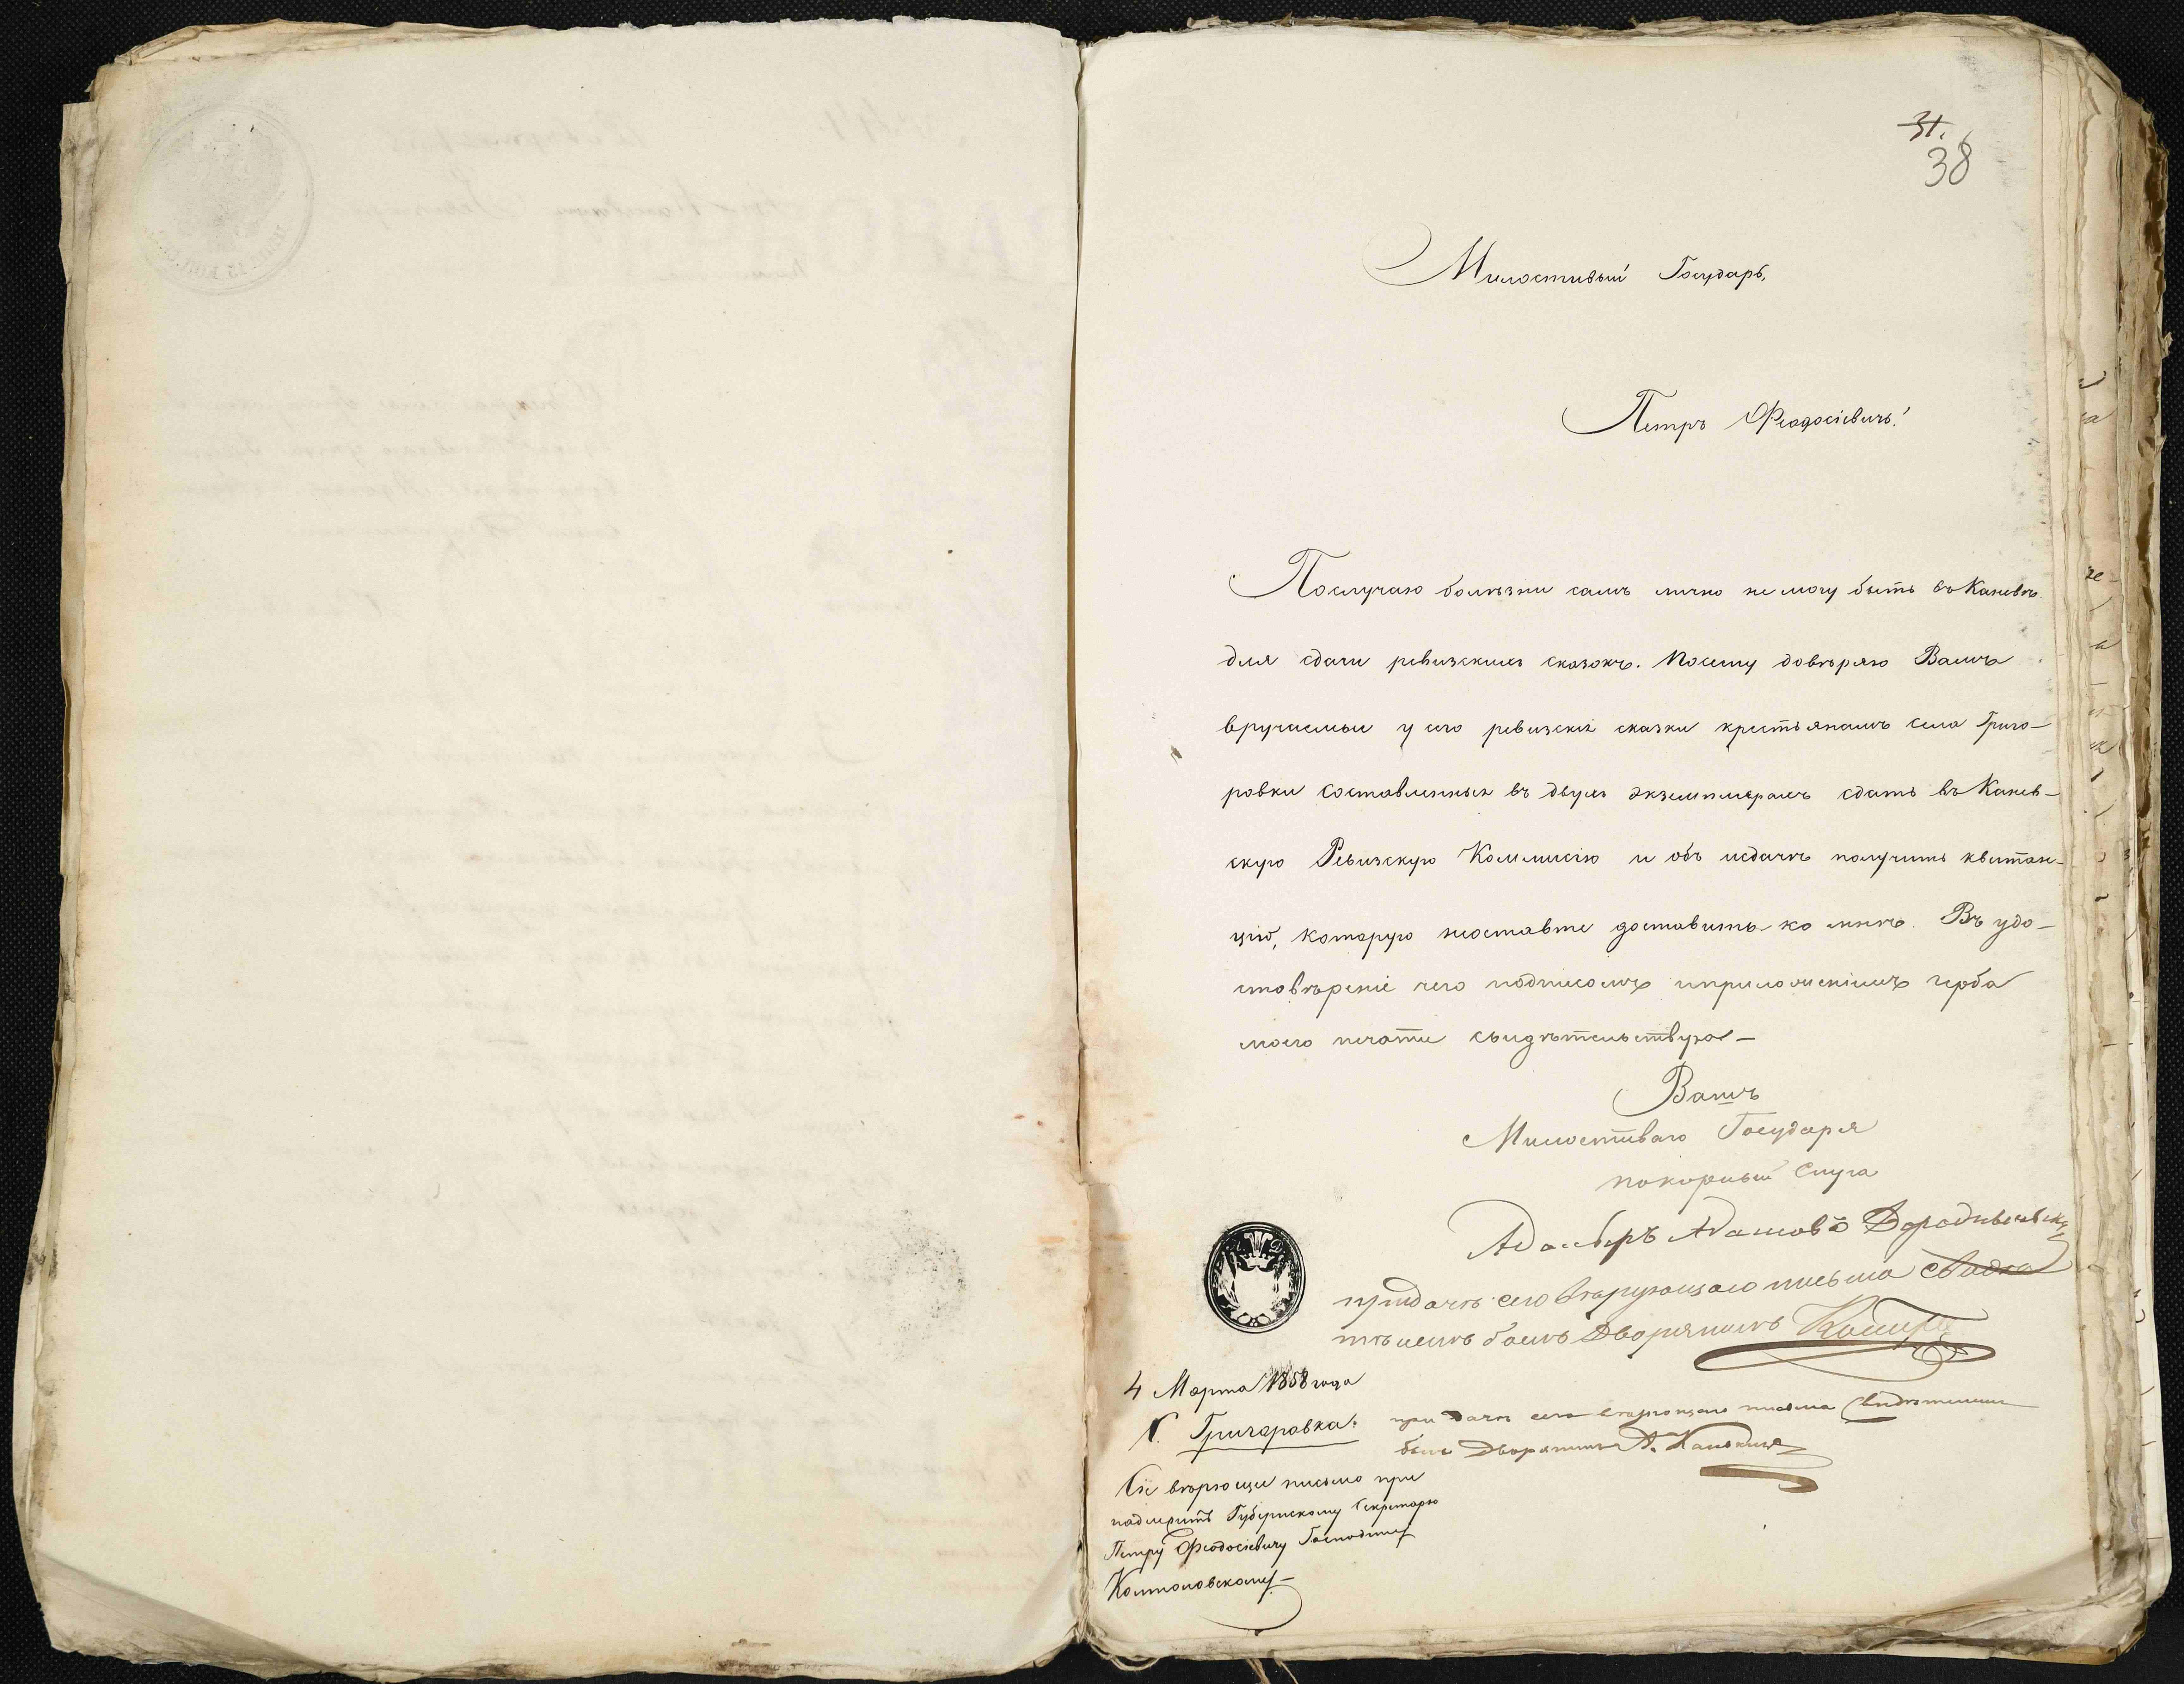 31.
38
Милостивый Государь,
Петръ Феодосіевичь!
Послучаю болѣзни самъ лично не могу быть въ Каневѣ
для сдачи ревизскихъ сказокъ. Посему довѣряю Вамъ
вручаемыи у сего ревизскія сказки крестьянамъ села Григо-
ровки составленныя въ двухъ экземплярахъ сдать въ Канев-
скую Ревизскую Коммисію и объ исдачѣ получить квитан-
цію, которую неоставте доставить ко мнѣ. Въ удо-
стовѣреніе чего подписомъ иприложеніемъ герба
моего печати свидѣтельствую-
Вашъ
Милостиваго Государя
покорный Слуга
Адамовъ
придачѣ сего вѣрующаго письма
былъ Дворянинъ
4 Марта 1858 года
С. Григоровка.
при дачѣ сего вѣрющаго письма Свидѣтелемъ
былъ Дворянинъ А.
Сіе вѣрющее письмо при
надлежитъ Губернскому Секретарю
Петру Феодосіевичу Господину